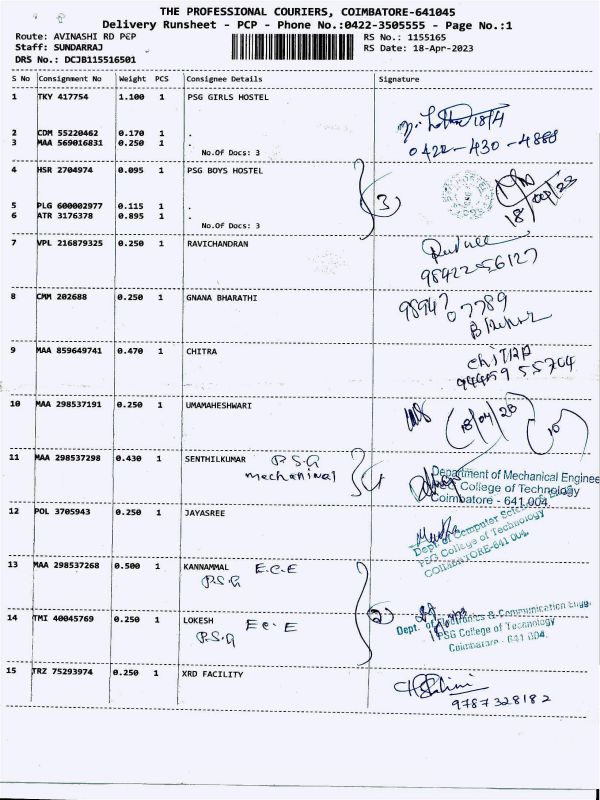 THE PROFESSIONAL COURIERS, COIMBATORE-641045
Delivery Runsheet - PCP - Phone No.:0422-3505555 - Page No.:1
Route: AVINASHI RD PCP
RS No.: 1155165
Staff: SUNDARRAJ
RS Date: 18-Apr-2023
DRS No.: DCJB115516501
S No Consignment No Weight PCS Consignee Details Signature
1 TKY 417754 1.100 1 PSG GIRLS HOSTEL
18/4
2 CDM 55220462 0.170 1 .
3 MAA 569016831 0.250 1 .
0422-430-4888
No.Of Docs: 3
4 HSR 2704974 0.095 1 PSG BOYS HOSTEL
3
5 PLG 600002977 0.115 1 .
6 ATR 3176378 0.895 1 .
No.Of Docs: 3
7 VPL 216879325 0.250 1 RAVICHANDRAN
98422-56127
8 CMM 202688 0.250 1 GNANA BHARATHI
98947
07789
9 MAA 859649741 0.470 1 CHITRA
CHITRA
94459 55704
10 MAA 298537191 0.250 1 UMAMAHESHWARI
18/04/23
10
11 MAA 298537298 0.430 1 SENTHILKUMAR P.S.G
mechanical
Department of Mechanical Enginee
PSG College of Technology
Coimbatore - 641 004.
12 POL 3705943 0.250 1 JAYASREE
Dept. of Computer Science
PSG College of Technology
COIMBATORE-641 004.
13 MAA 298537268 0.500 1 KANNAMMAL E.C.E
P.S.G
14 TMI 40045769 0.250 1 LOKESH E.C.E
P.S.G
2
Dept. of Electronics & Communication Engg.
PSG College of Technology
Coimbatore - 641 004.
15 TRZ 75293974 0.250 1 XRD FACILITY
9787328182